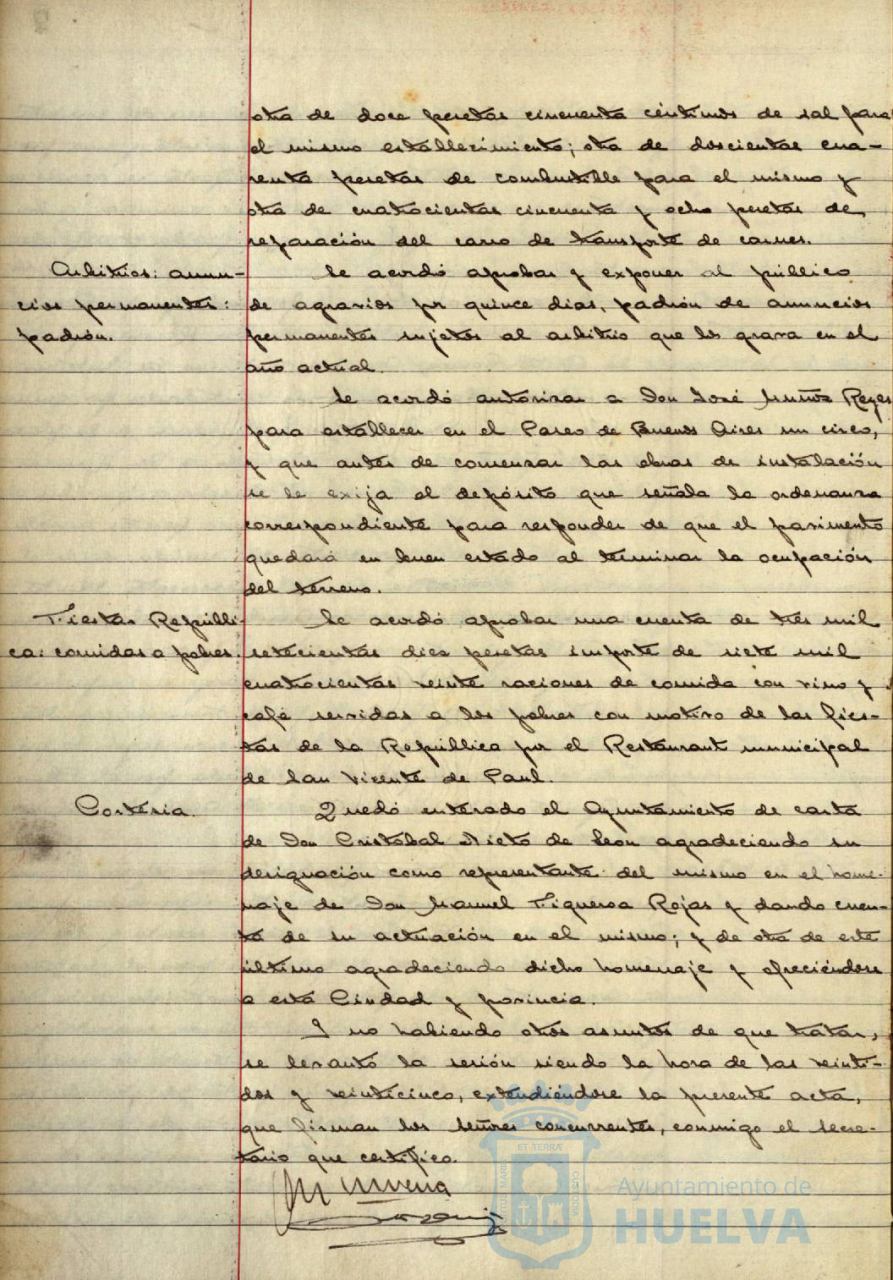 otra de doce pesetas cincuenta céntimos de sal para
el mismo establecimiento; otra de doscientas cua-
renta pesetas de combustible para el mismo y
otra de cuatrocientas cincuenta y ocho pesetas de
reparación del carro de transporte de carnes.
Arbitrios: anun-
cios permanentes:
padrón.
Se acordó aprobar y exponer al público
de agravios por quince dias, padrón de anuncios
permanentes sujetos al arbitrio que los grava en el
año actual.
Se acordó autorizar a Don José Muñoz Reyes
para establecer en el Paseo de Buenos Aires un circo,
y que antes de comenzar las obras de instalación
se le exija el depósito que señala la ordenanza
correspondiente para responder de que el pavimento
quedará en buen estado al terminar la ocupación
del terreno.
Fiestas Repúbli-
ca: comidas a pobres:
Se acordó aprobar una cuenta de tres mil
setecientas diez pesetas importe de siete mil
cuatrocientas veinte raciones de comida con vino y
café servidas a los pobres con motivo de las fies-
tas de la República por el Restaurant municipal
de San Vicente de Paul.
Cortesia.
Quedó enterado el Ayuntamiento de carta
de Don Cristóbal Nieto de Leon agradeciendo su
designación como representante del mismo en el home-
naje de Don Manuel Figueroa Rojas y dando cuen-
ta de su actuación en el mismo; y de otra de este
último agradeciendo dicho homenaje y ofreciéndose
a esta Ciudad y provincia.
Y no habiendo otros asuntos de que tratar,
se levantó la sesión siendo la hora de las veinti-
dos y veinticinco, extendiéndose la presente acta,
que firman los señores concurrentes, conmigo el secre-
tario que certifico.
Ayuntamiento de
HUELVA